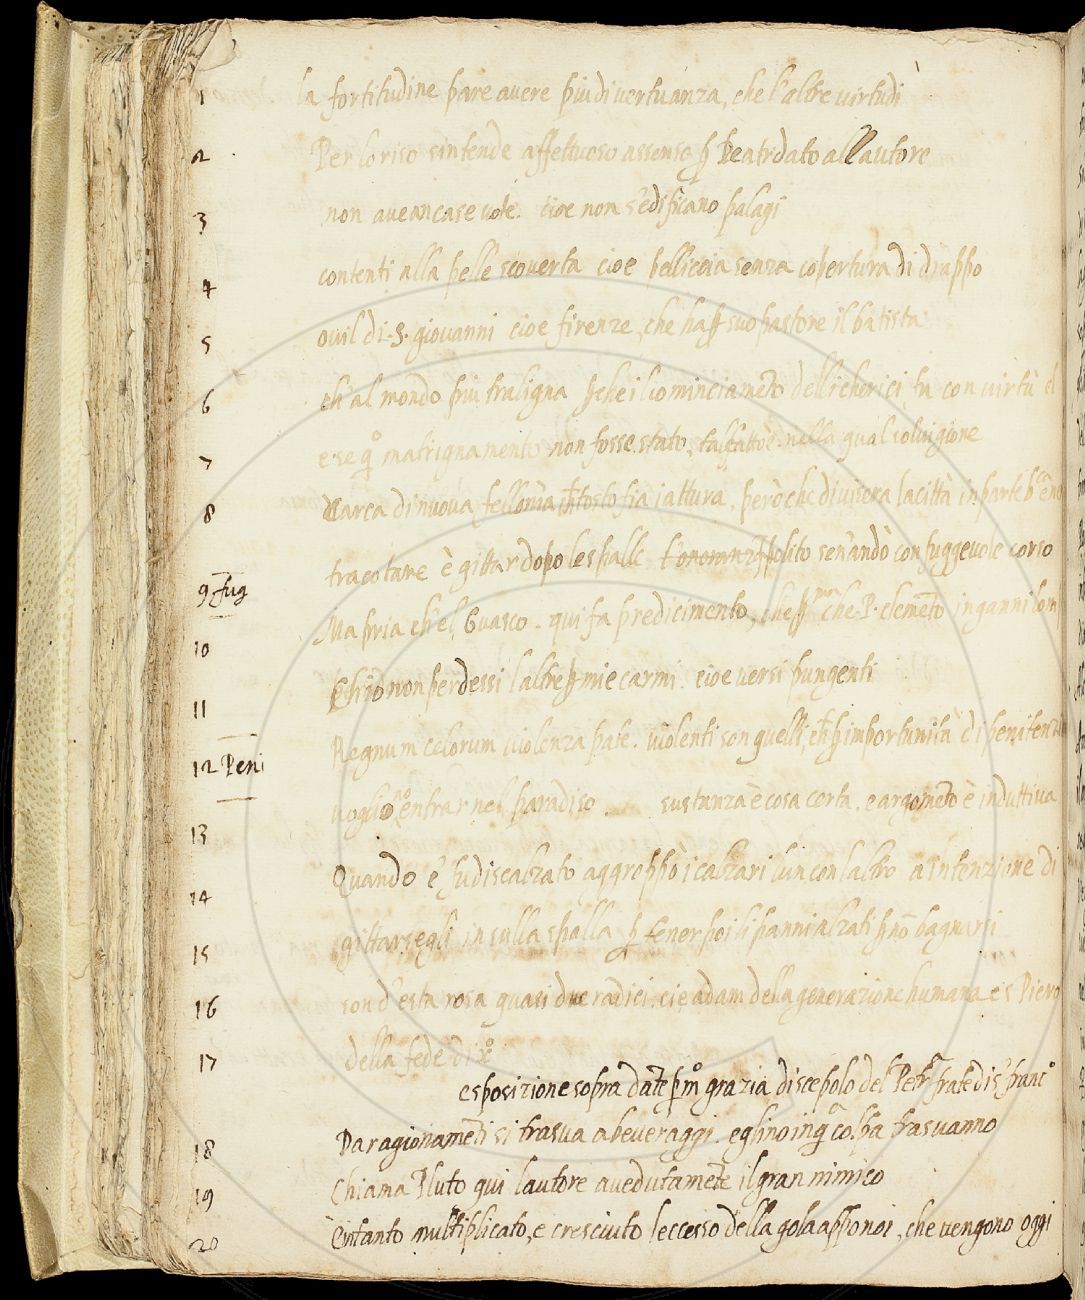 1 la fortitudine pare avere piu di vertuanza, che l'altre virtudi
2 Per lo riso sintende affettuoso assenso ꝑ Beatr dato all autore
3 non avean case vote. cioe non s'edificano palagi
4 contenti alla pelle scoverta cioe pelliccia senza copertura di drappo
5 ovil di .S. giovanni cioe firenze, che ha ꝑ suo pastore il batista
6 ch al mondo piu traligna ꝑche il cominciamēto delli cherici fu con virtù
7 e se q̊ matrignamento non fosse stato, nella qual
8 Carca di nuova fellonia tosto fia iattura. però che divisera la città in parte
tracotare è gittar dopo le spalle senandò con fuggevole corso
9 fug
Ma pria ch'el Guasco. qui fa predicimento, che P. clemēto inganni
10
Ch'io non perdessi l altre ꝑ mie carmi. cioe versi pungenti
11
Regnum celorum violenza pate. violenti son quelli, ch ꝑ importunità di penitenza
12 Peni
voglio entrar nel paradiso sustanza è cosa certa. e argomēto è induttiva
13
Quando e' fu discalzato aggroppò i calzari lun con laltro a intenzione di
14
gittarsegli in sulla spalla ꝑ tener poi li panni alzati ꝑ nō bagnarsi
15
16 son d'esta rosa quasi due radici. cie adam dela generazione humana e S Piero
17 della fede di
esposizione sopra dāte ꝑ mº grazia discepolo del Petrª frate di S franc°
18 Da ragionamēti si trasva a beveraggi. eglino in q̄ colpa trasvanno
19 Chiama Pluto qui lautore avedutamēte il gran nimico
20 E intanto multiplicato, e cresciuto leccesso della gola appo noi, che vengono oggi